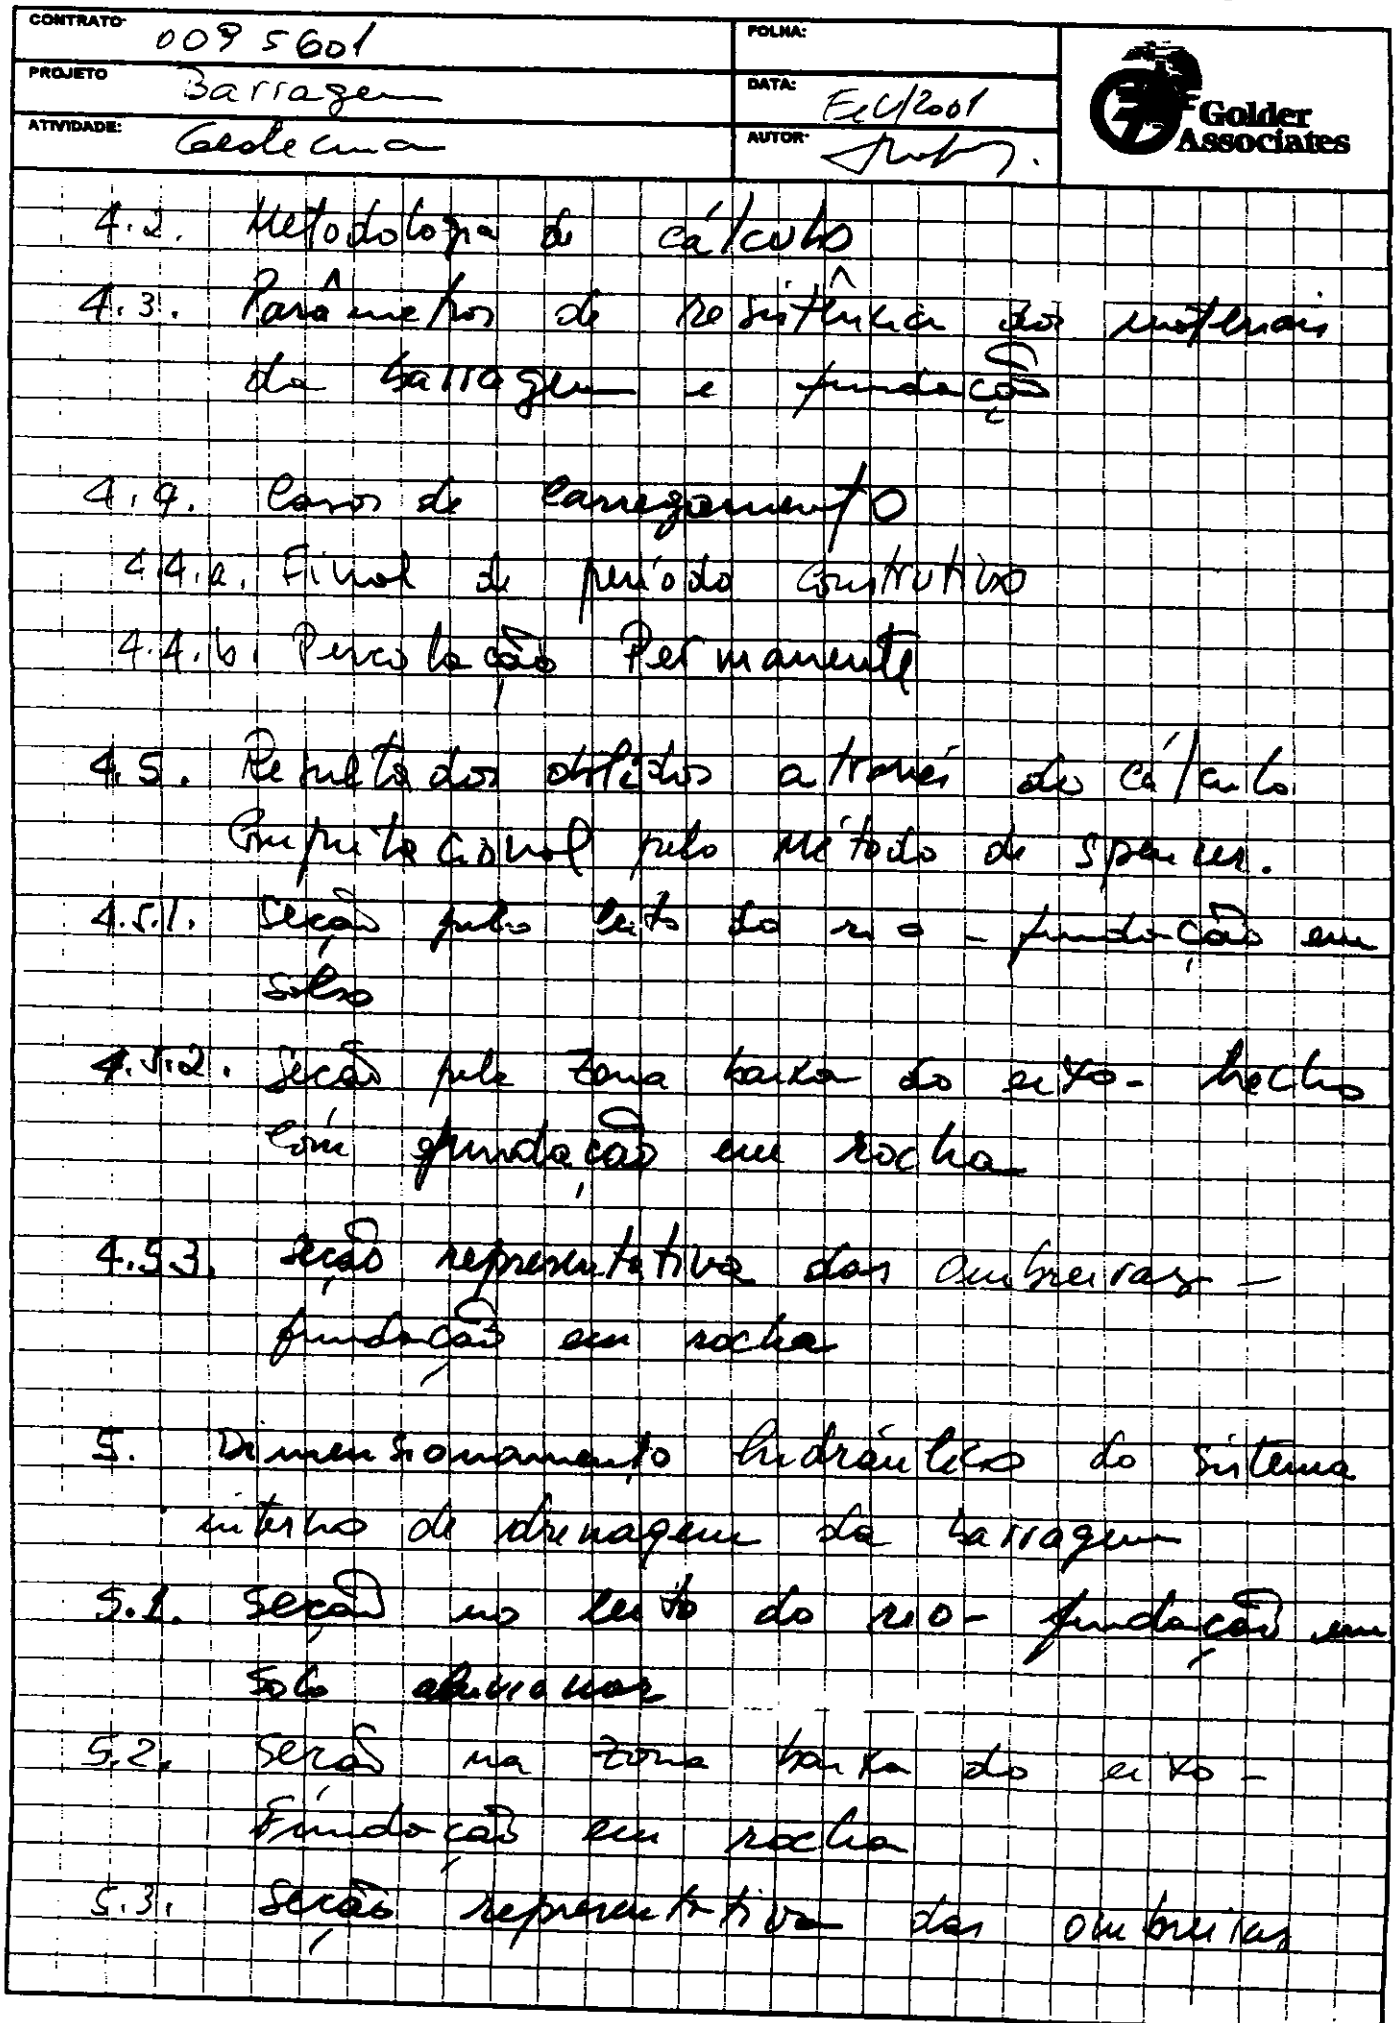 CONTRATO: 0095601
FOLHA:
PROJETO Barragem
DATA: Fev/2001
ATIVIDADE: Geotecnia
AUTOR:
Golder
Associates
4.2. Metodologia de cálculo
4.3. Parâmetros de resistência dos materiais
da barragem e fundação
4.4. Casos de carregamento
4.4.a. Final de período construtivo
4.4.b. Percolação Permanente
4.5. Resultados obtidos através do cálculo
Computacional pelo Método de Spencer.
4.5.1. Seção pelo leito do rio - fundação em
solo
4.5.2. Seção pela zona baixa do eixo - trecho
com fundação em rocha
4.5.3. Seção representativa das ombreiras -
fundação em rocha
5. Dimensionamento hidráulico do sistema
interno de drenagem da barragem
5.1. Seção no leito do rio - fundação em
solo aluvionar
5.2. Seção na zona baixa do eixo -
Fundação em rocha
5.3. Seção representativa das ombreiras